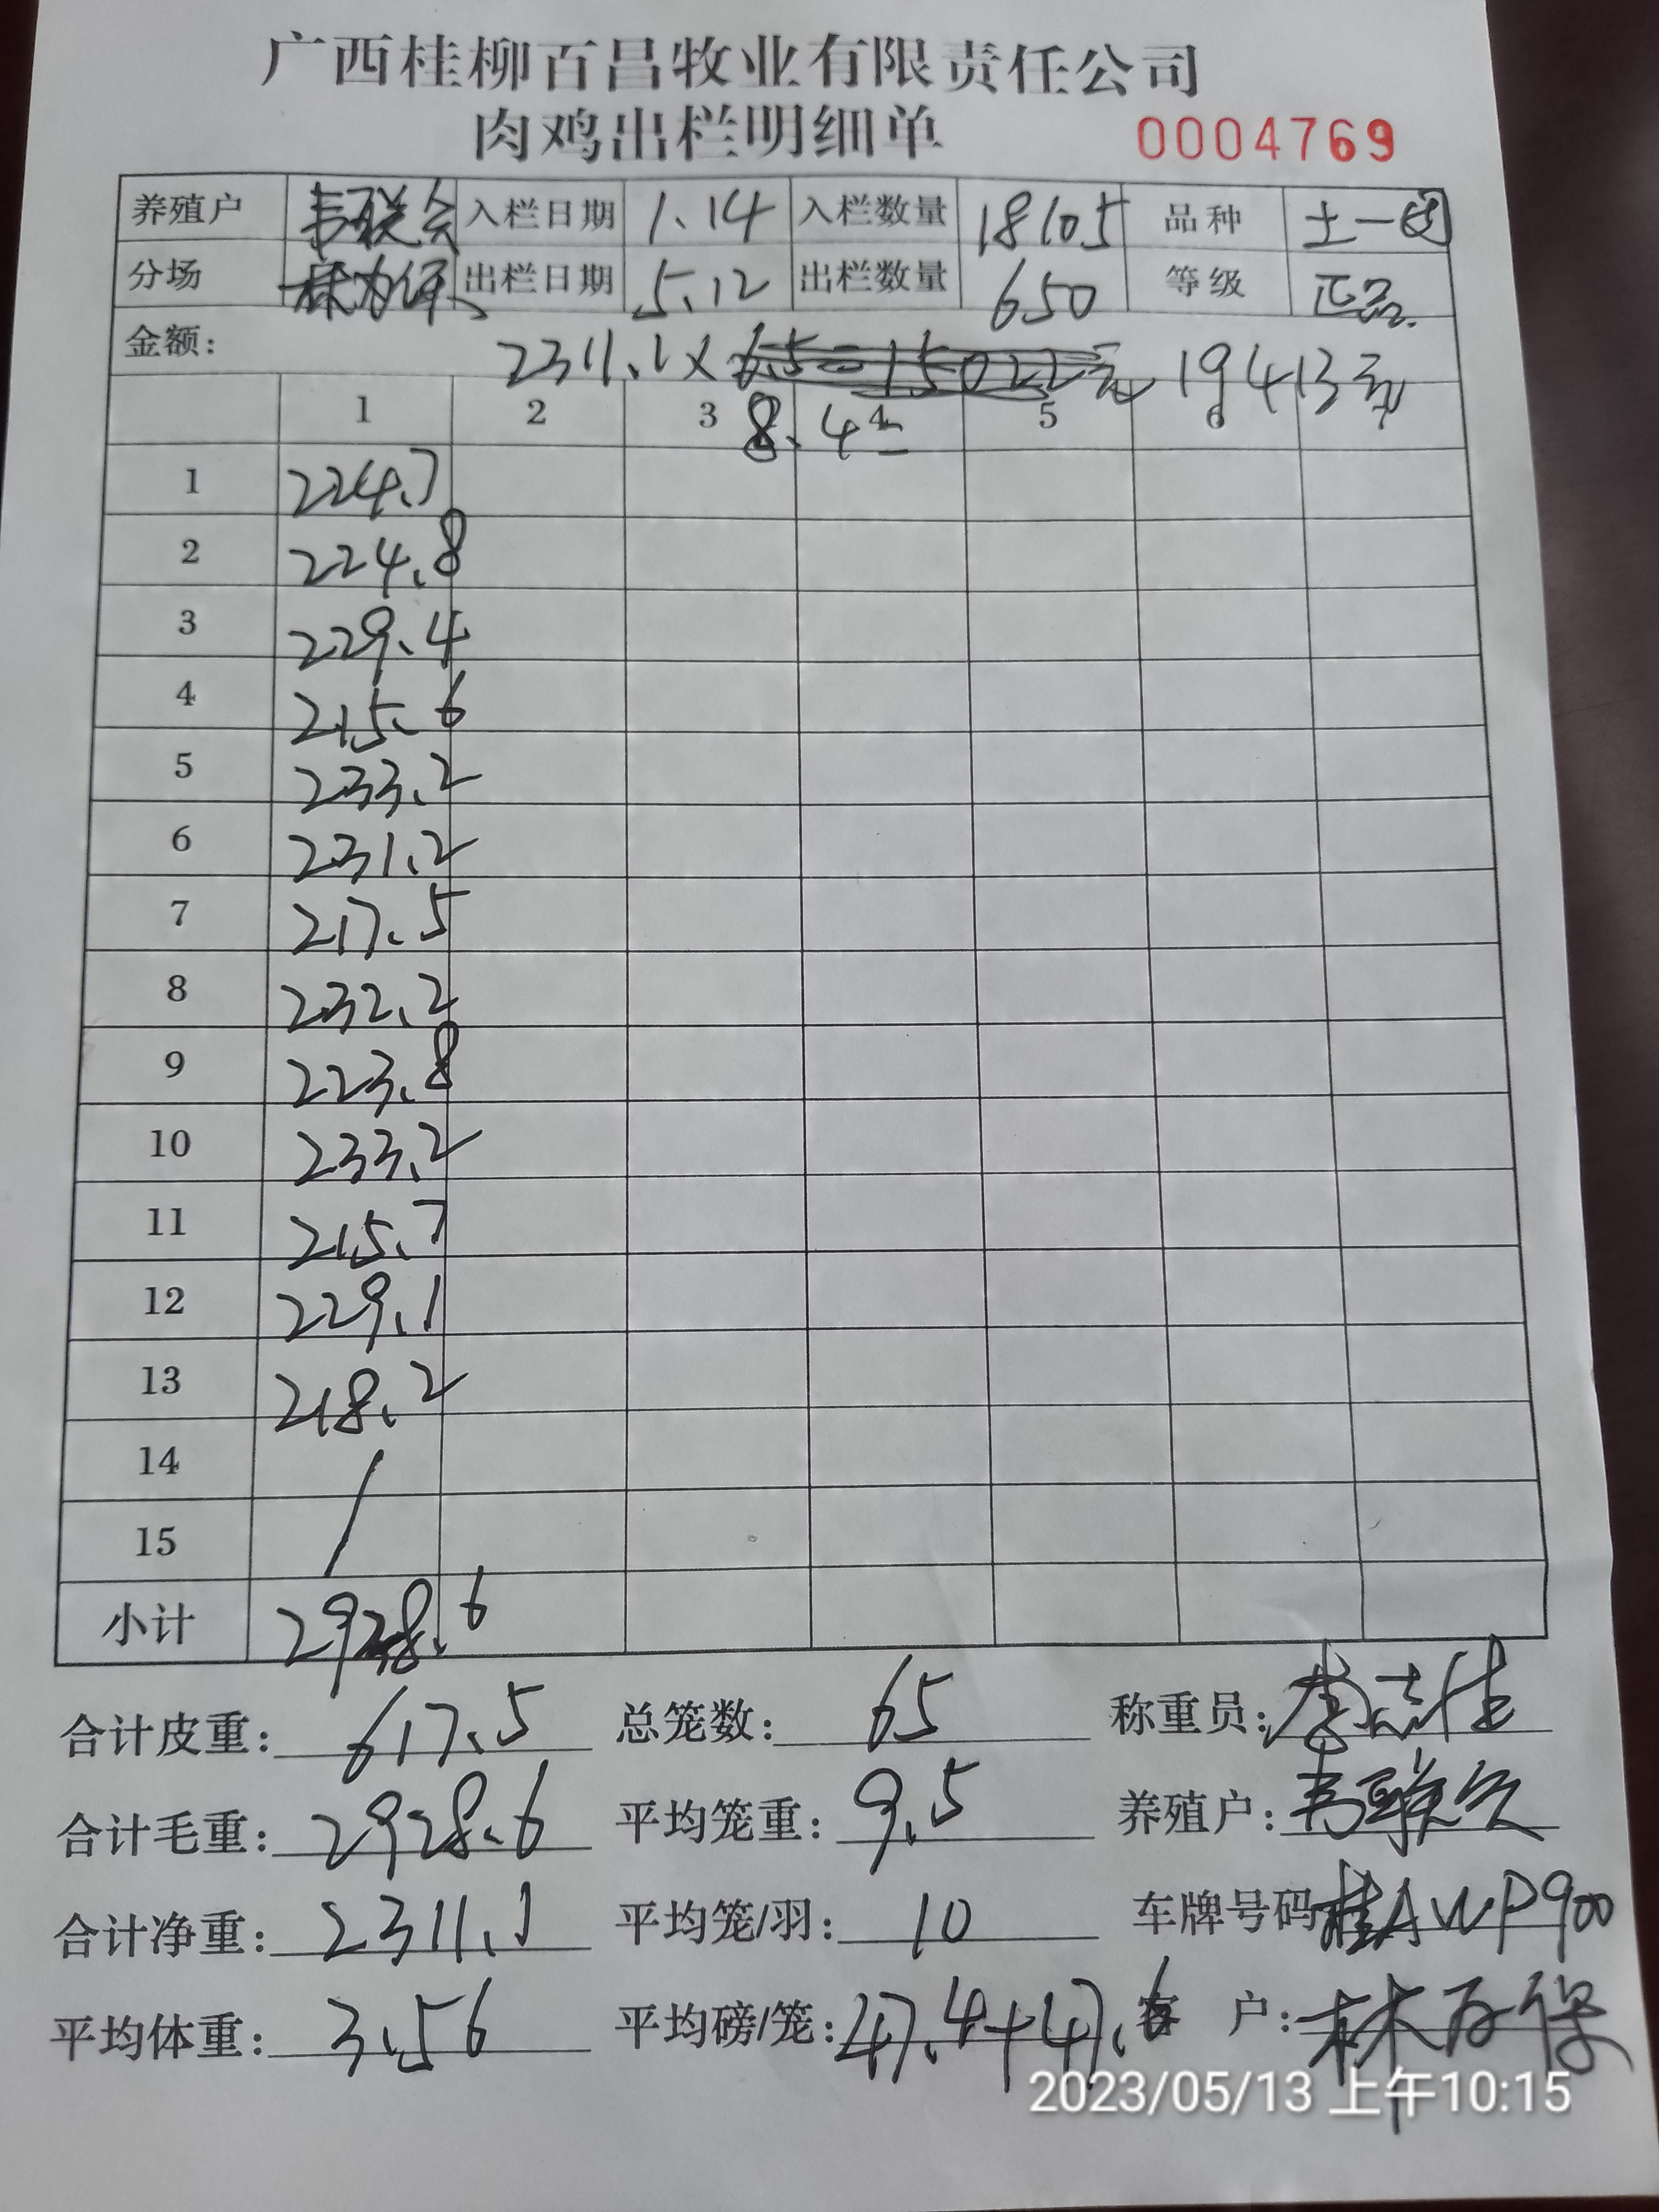 广西桂柳百昌牧业有限责任公司
肉鸡出栏明细单 0004769
养殖户 韦联会 入栏日期 1.14 入栏数量 18105 品种 土一
分场 出栏日期 5.12 出栏数量 650 等级 正品.
金额: 2311.1× 6.5=15022元 19413元
1 2 3 4 5 6 7
8.4=
1 224.7
2 224.8
3 229.4
4 215.6
5 233.2
6 231.2
7 217.5
8 232.2
9 223.8
10 233.2
11 215.7
12 229.1
13 218.2
14 /
15
小计 2928.6
合计皮重: 617.5 总笼数: 65 称重员:
合计毛重: 2928.6 平均笼重: 9.5 养殖户: 韦联会
合计净重: 2311.1 平均笼/羽: 10 车牌号码 桂AWP900
平均体重: 3.56 平均磅/笼: 47.4+47.6 客 户:
2023/05/13 上午10:15